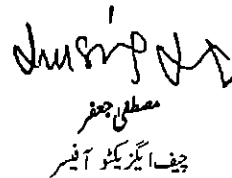 مصطفیٰ جعفر
چیف ایگزیکٹو آفیسر